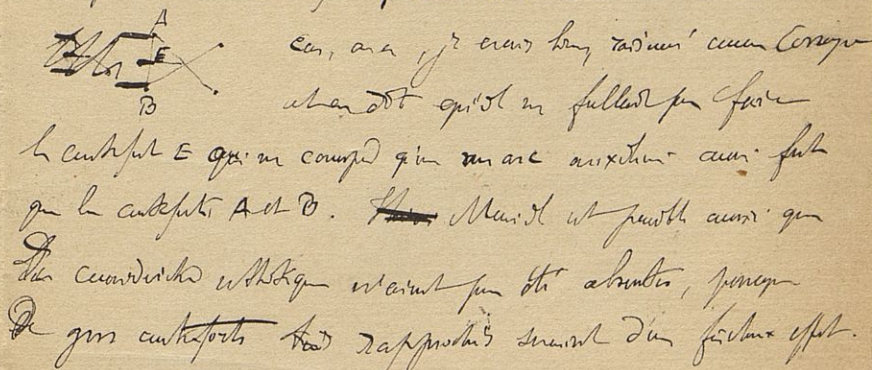 A
E
B
cas, on a, je crois bien, raisonné comme Corroyer
et on a dit qu'il ne fallait pas faire
le contrefort E qui ne correspd qu'à un arc auxiliaire aussi fort
que les contreforts A et B. Mais il est possible aussi que
des considérations esthétiques n'aient pas été absentes, parce que
De gros contreforts très rapprochés seraient d'un fâcheux effet.